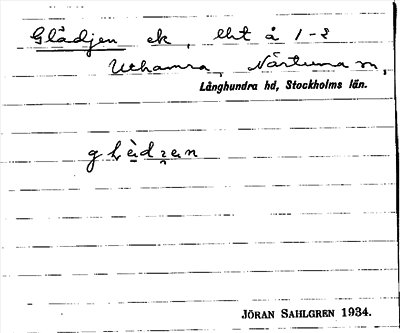 Glädjen ek, lht å 1-3
Uthamra, Närtuna sn,
Långhundra hd, Stockholms län.
JÖRAN SAHLGREN 1934.